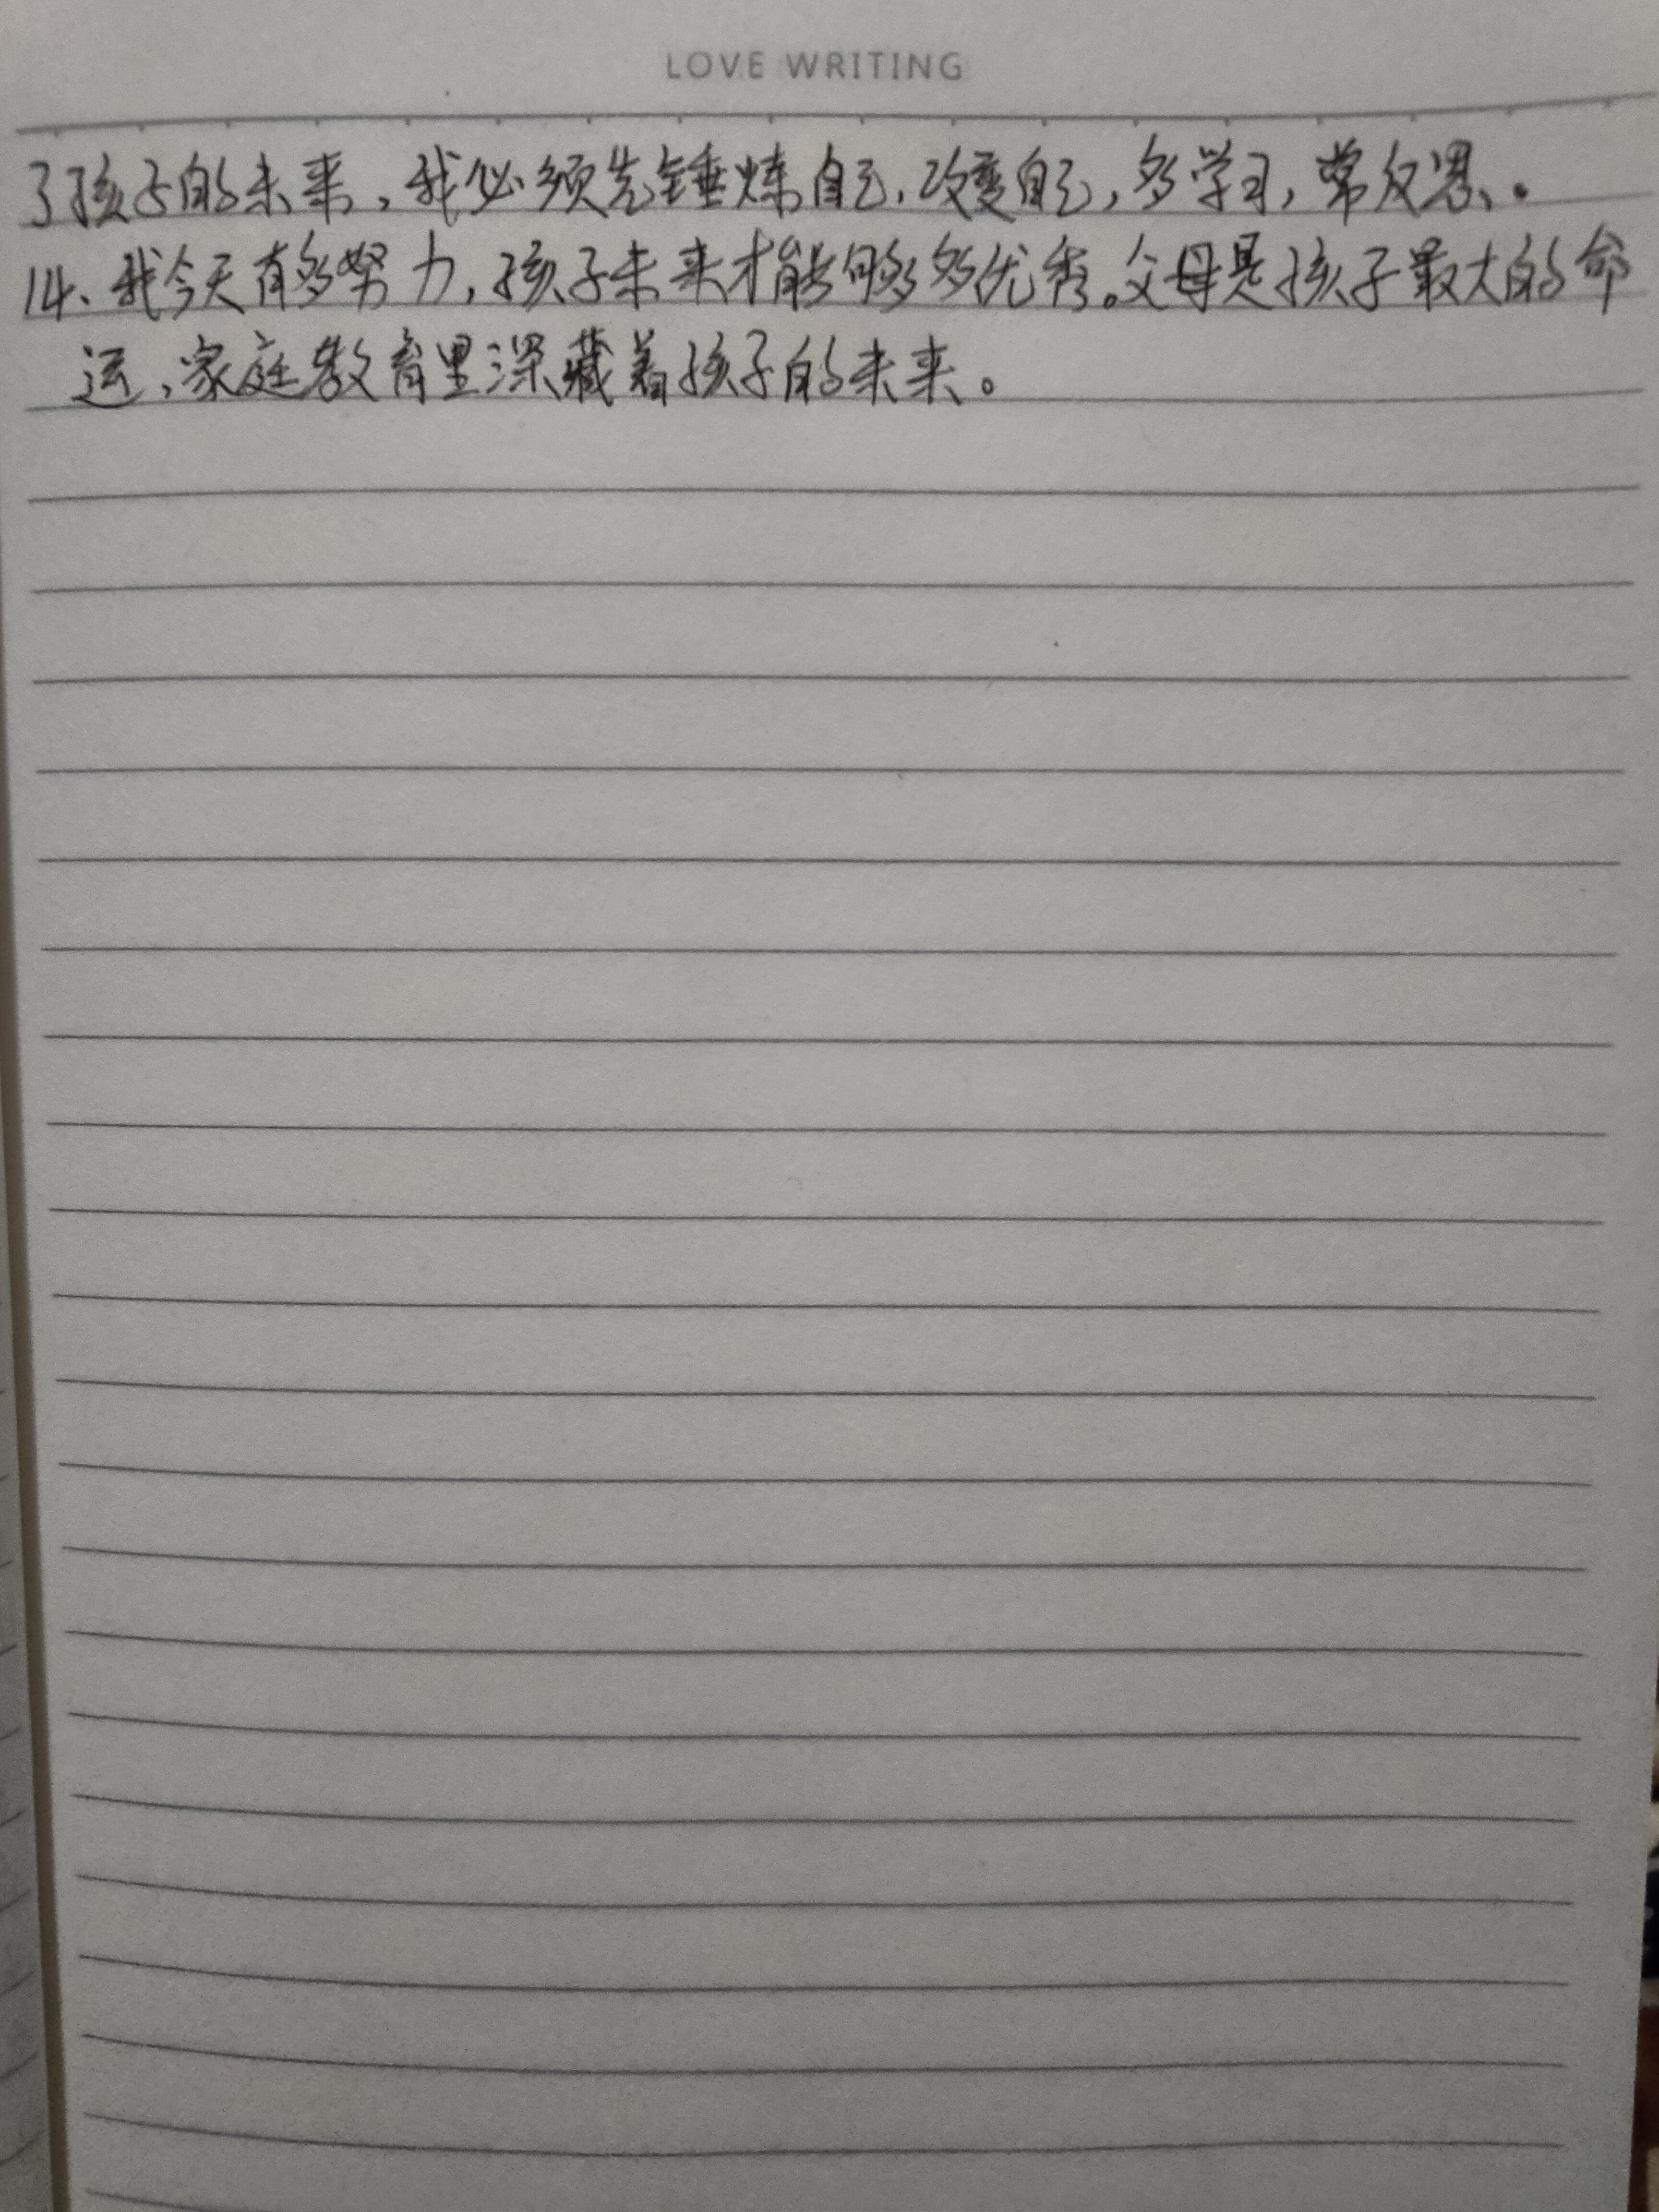 LOVE WRITING
了孩子的未来，我必须先锤炼自己，改变自己，多学习，常反思、。
14、我今天有多努力，孩子未来才能够多优秀。父母是孩子最大的命
运，家庭教育里深藏着孩子的未来。